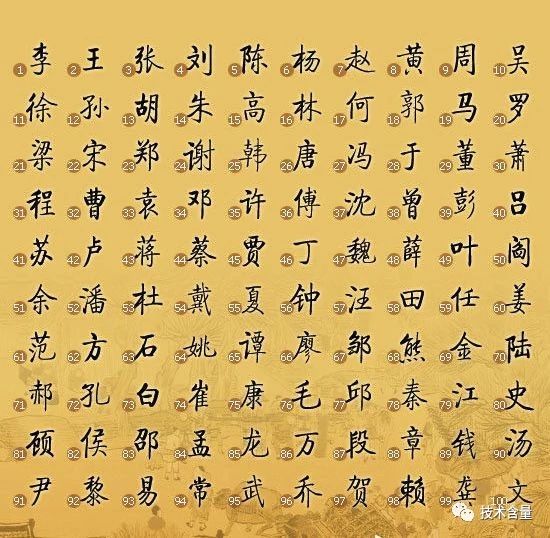 1李 2王 3张 4刘 5陈 6杨 7赵 8黄 9周 10吴
11徐 12孙 13胡 14朱 15高 16林 17何 18郭 19马 20罗
21梁 22宋 23郑 24谢 25韩 26唐 27冯 28于 29董 30萧
31程 32曹 33袁 34邓 35许 36傅 37沈 38曾 39彭 40吕
41苏 42卢 43蒋 44蔡 45贾 46丁 47魏 48薛 49叶 50阎
51余 52潘 53杜 54戴 55夏 56钟 57汪 58田 59任 60姜
61范 62方 63石 64姚 65谭 66廖 67邹 68熊 69金 70陆
71郝 72孔 73白 74崔 75康 76毛 77邱 78秦 79江 80史
81顾 82侯 83邵 84孟 85龙 86万 87段 88章 89钱 90汤
91尹 92黎 93易 94常 95武 96乔 97贺 98赖 99龚 100文
技术含量